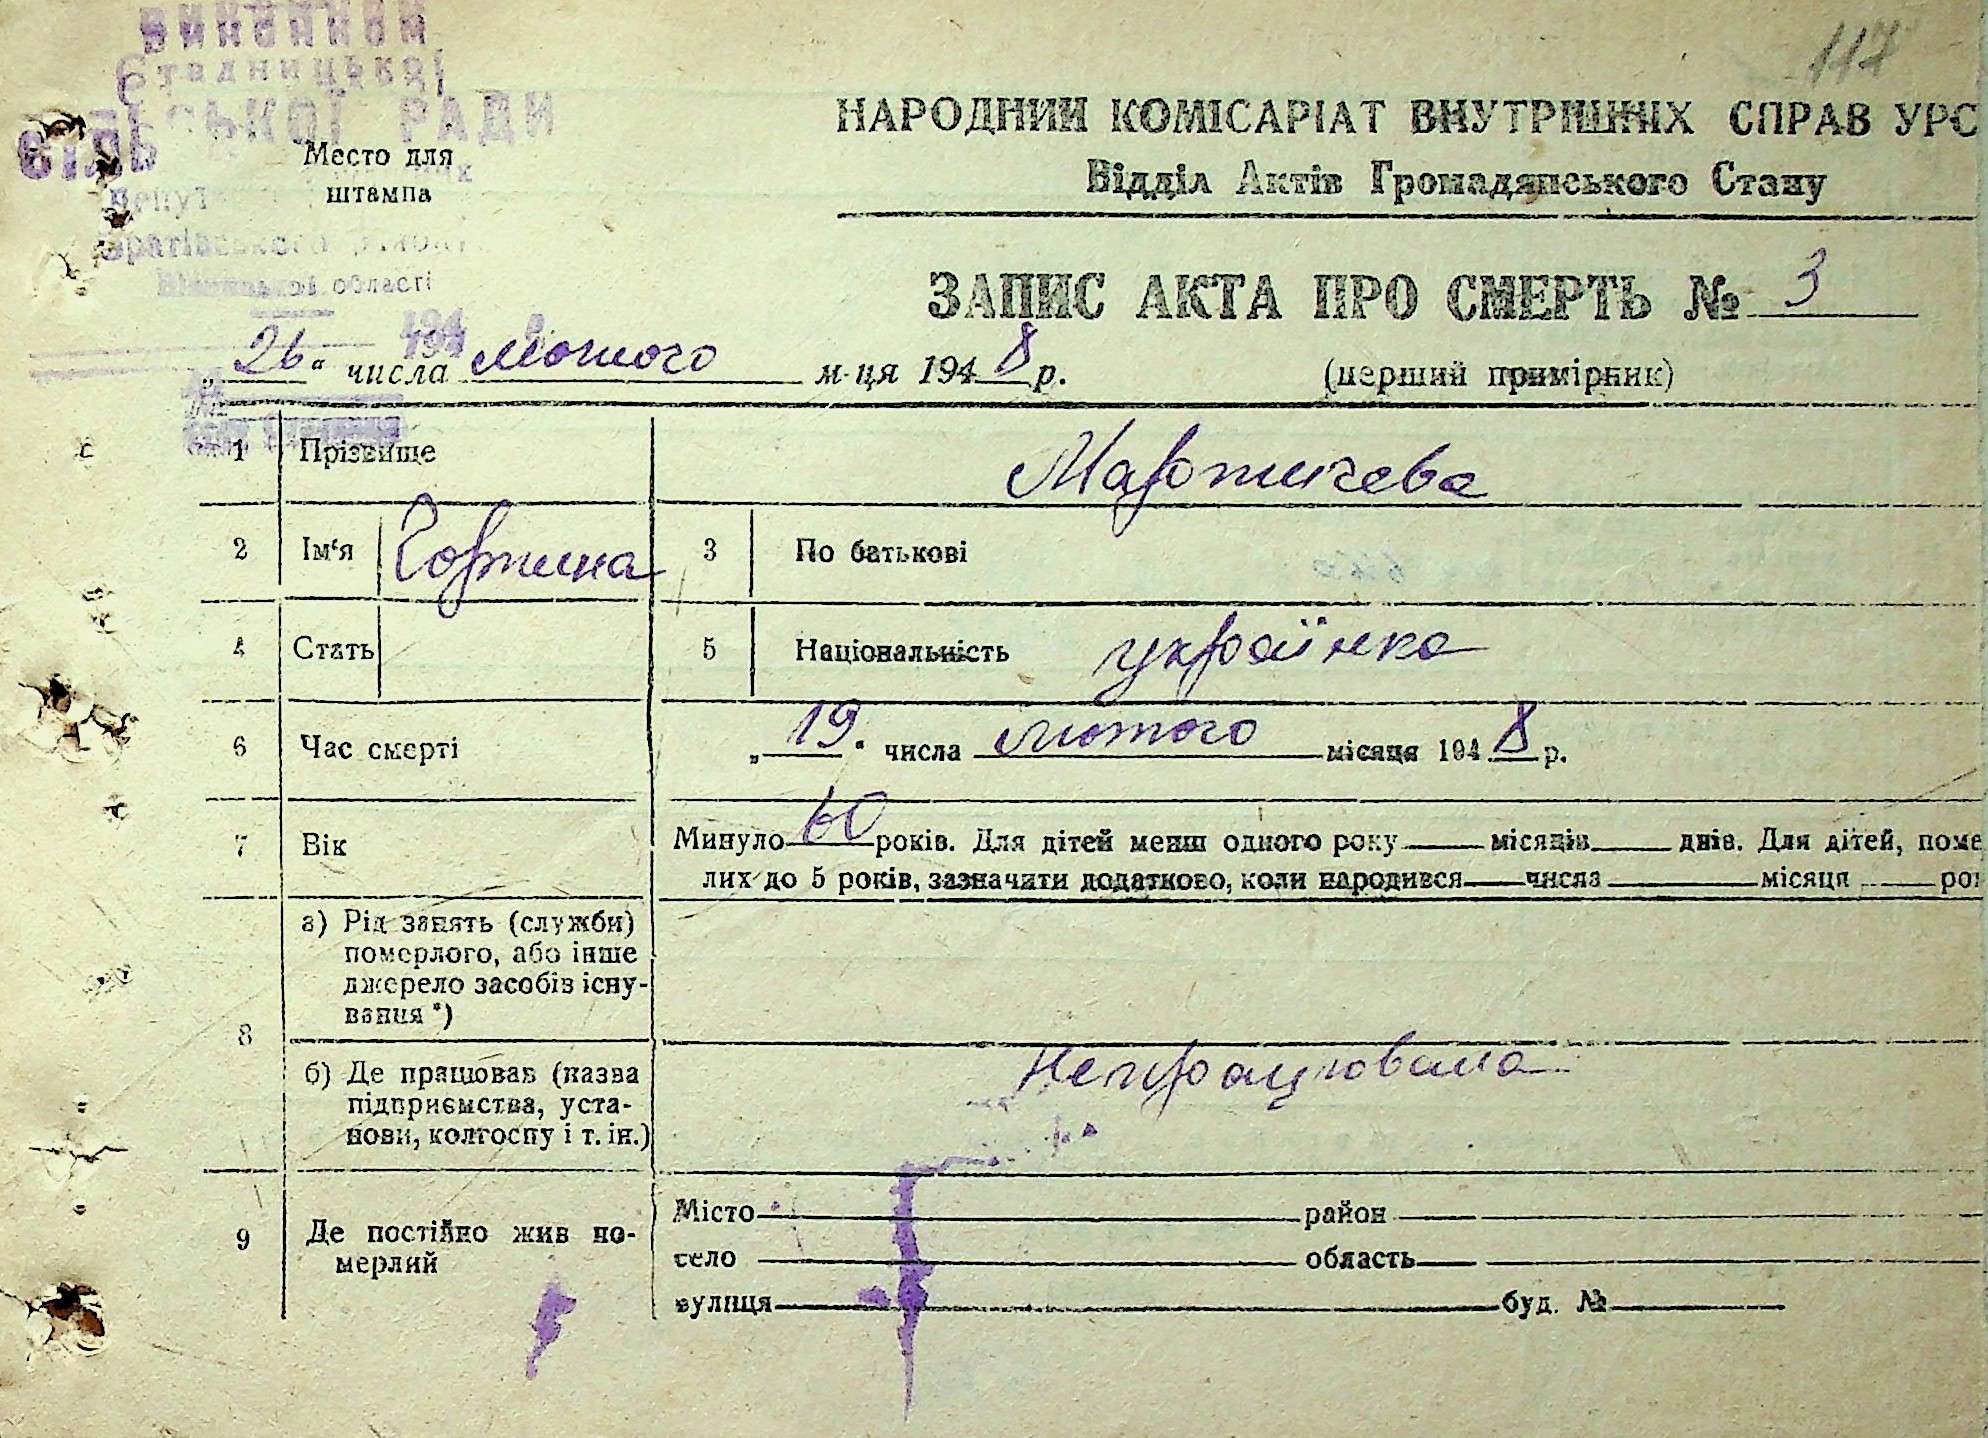 117
виконком
Стадницької
сільської РАДИ
Місто для
штампа
області
НАРОДНИЙ КОМІСАРІАТ ВНУТРІШНІХ СПРАВ УРС
Відділ Актів Громадянського Стану
ЗАПИС АКТА ПРО СМЕРТЬ № 3
„26“ числа лютого м-ця 1948 р.
(перший примірник)
1 Прізвище
2 Ім‘я
3 По батькові
4 Стать
5 Національність українка
6 Час смерті „19.“ числа лютого місяця 1948 р.
7 Вік Минуло 60 років. Для дітей менш одного року місяців днів. Для дітей, поме
лих до 5 років, зазначити додатково, коли народився числа місяця ро
8 а) Рід занять (служби)
померлого, або інше
джерело засобів існу-
вання*)
б) Де працював (назва
підприємства, уста-
нови, колгоспу і т. ін.)
Непрацювала
9 Де постійно жив по-
мерлий
Місто район
село область
вулиця буд. №